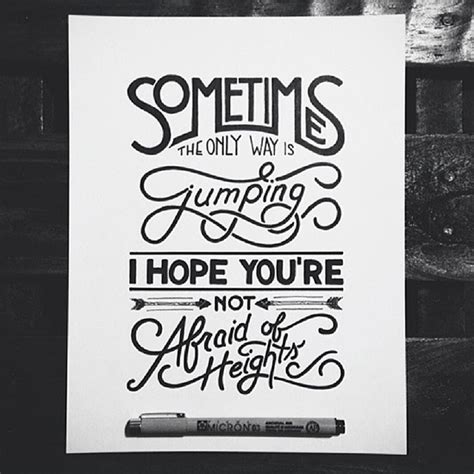 SOMETIMES
THE ONLY WAY IS
jumping
I HOPE YOU'RE
NOT
Afraid of
Heights
MICRON 03